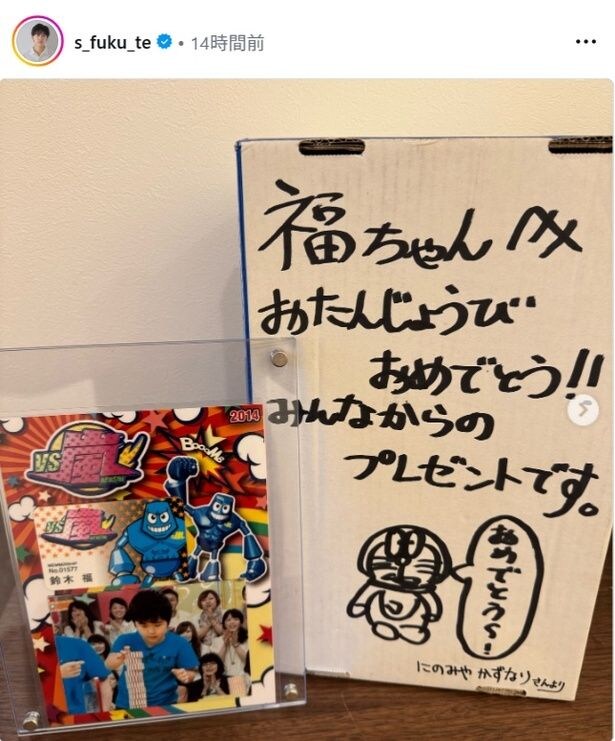 s_fuku_te • 14時間前
福ちゃんへ
おたんじょうび
おめでとう!!
みんなからの
プレゼントです。
おめでとう〜!
にのみや かずなり さんより
2014
VS嵐
BOOOM!!
VS嵐
No.01577
鈴木 福